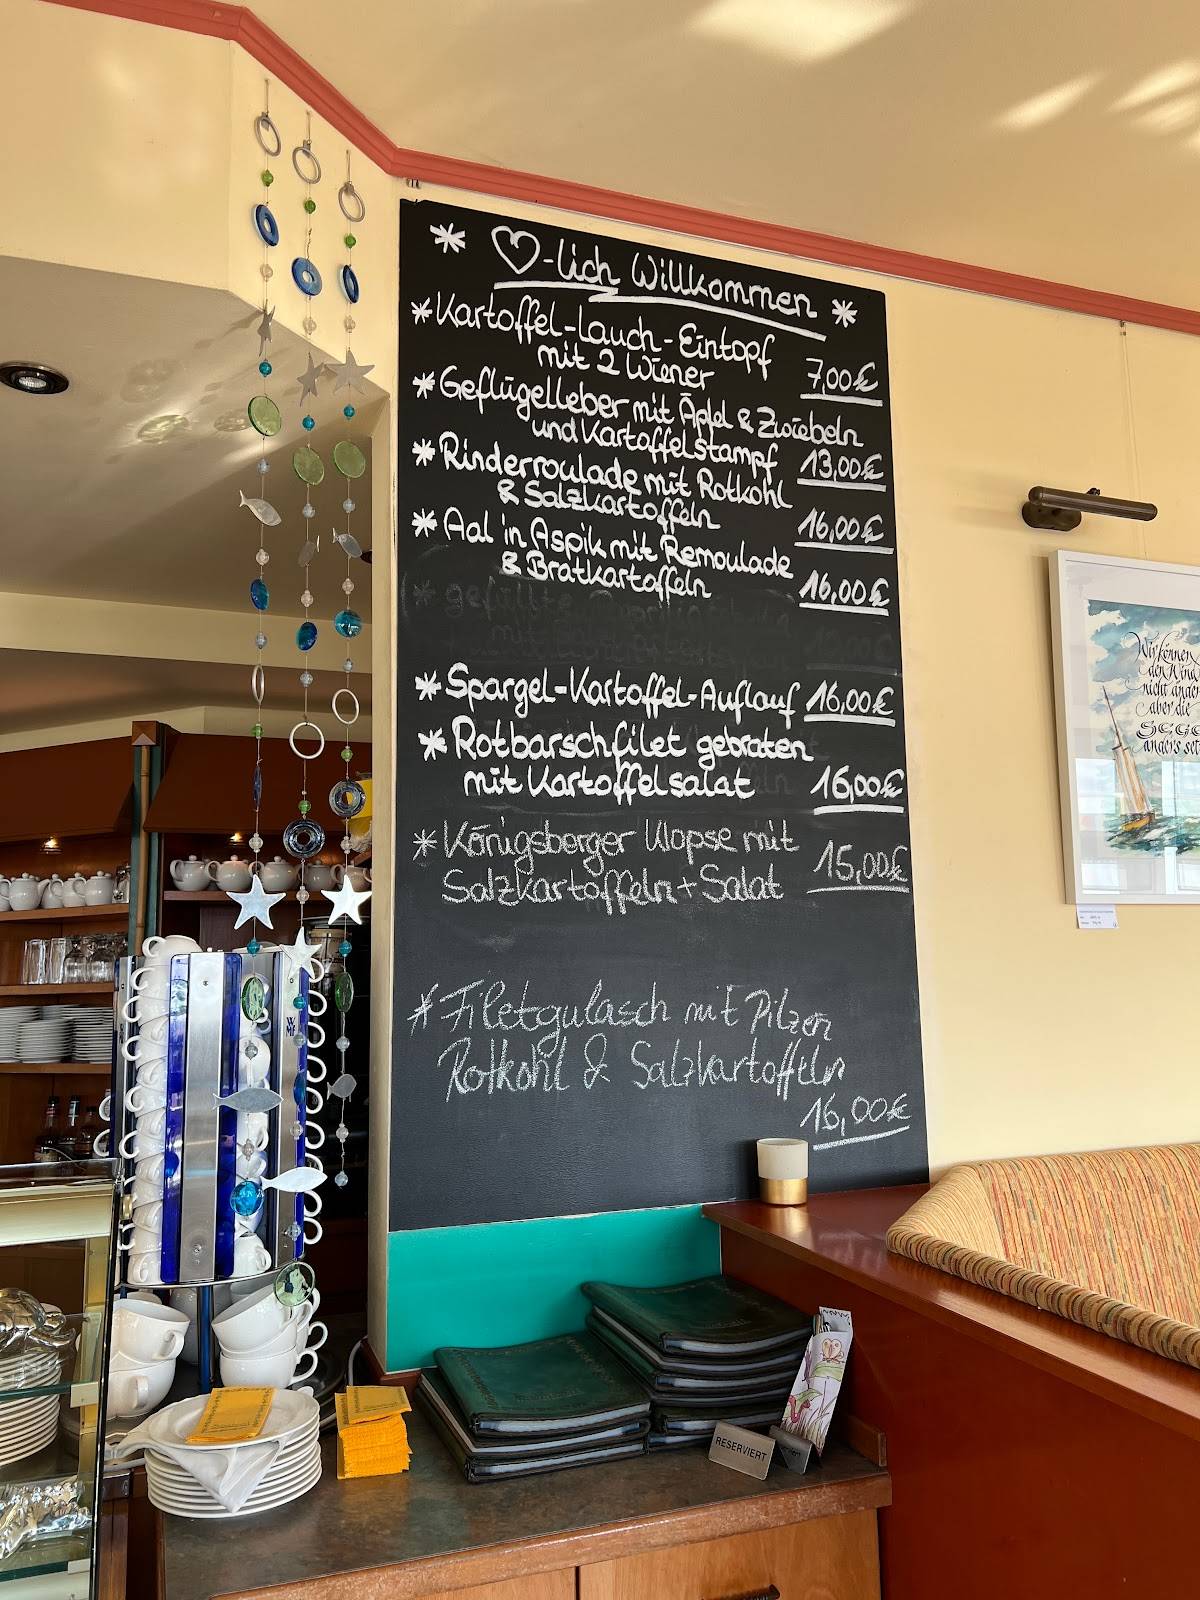 * ♡-lich Willkommen *
* Kartoffel-Lauch-Eintopf
mit 2 Wiener 7,00€
* Geflügelleber mit Äpfel & Zwiebeln
und Kartoffelstampf 13,00€
* Rinderroulade mit Rotkohl
& Salzkartoffeln 16,00€
* Aal in Aspik mit Remoulade
& Bratkartoffeln 16,00€
* Spargel-Kartoffel-Auflauf 16,00€
* Rotbarschfilet gebraten
mit Kartoffelsalat 16,00€
* Königsberger Klopse mit
Salzkartoffeln + Salat 15,00€
* Filetgulasch mit Pilzen
Rotkohl & Salzkartoffeln
16,00€
Wir können
den Wind
nicht änder
aber die
anders set
WMF
RESERVIERT